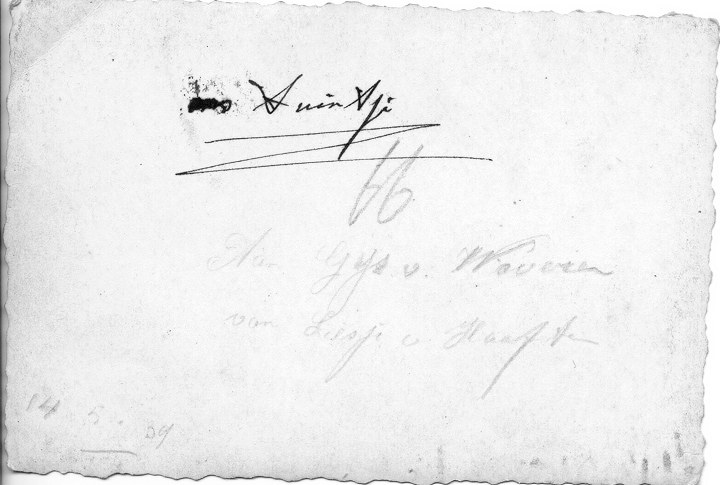 Tuintje
66
Aan Gijs v. Woveren
van Liesje v Haaften
14 5. 39